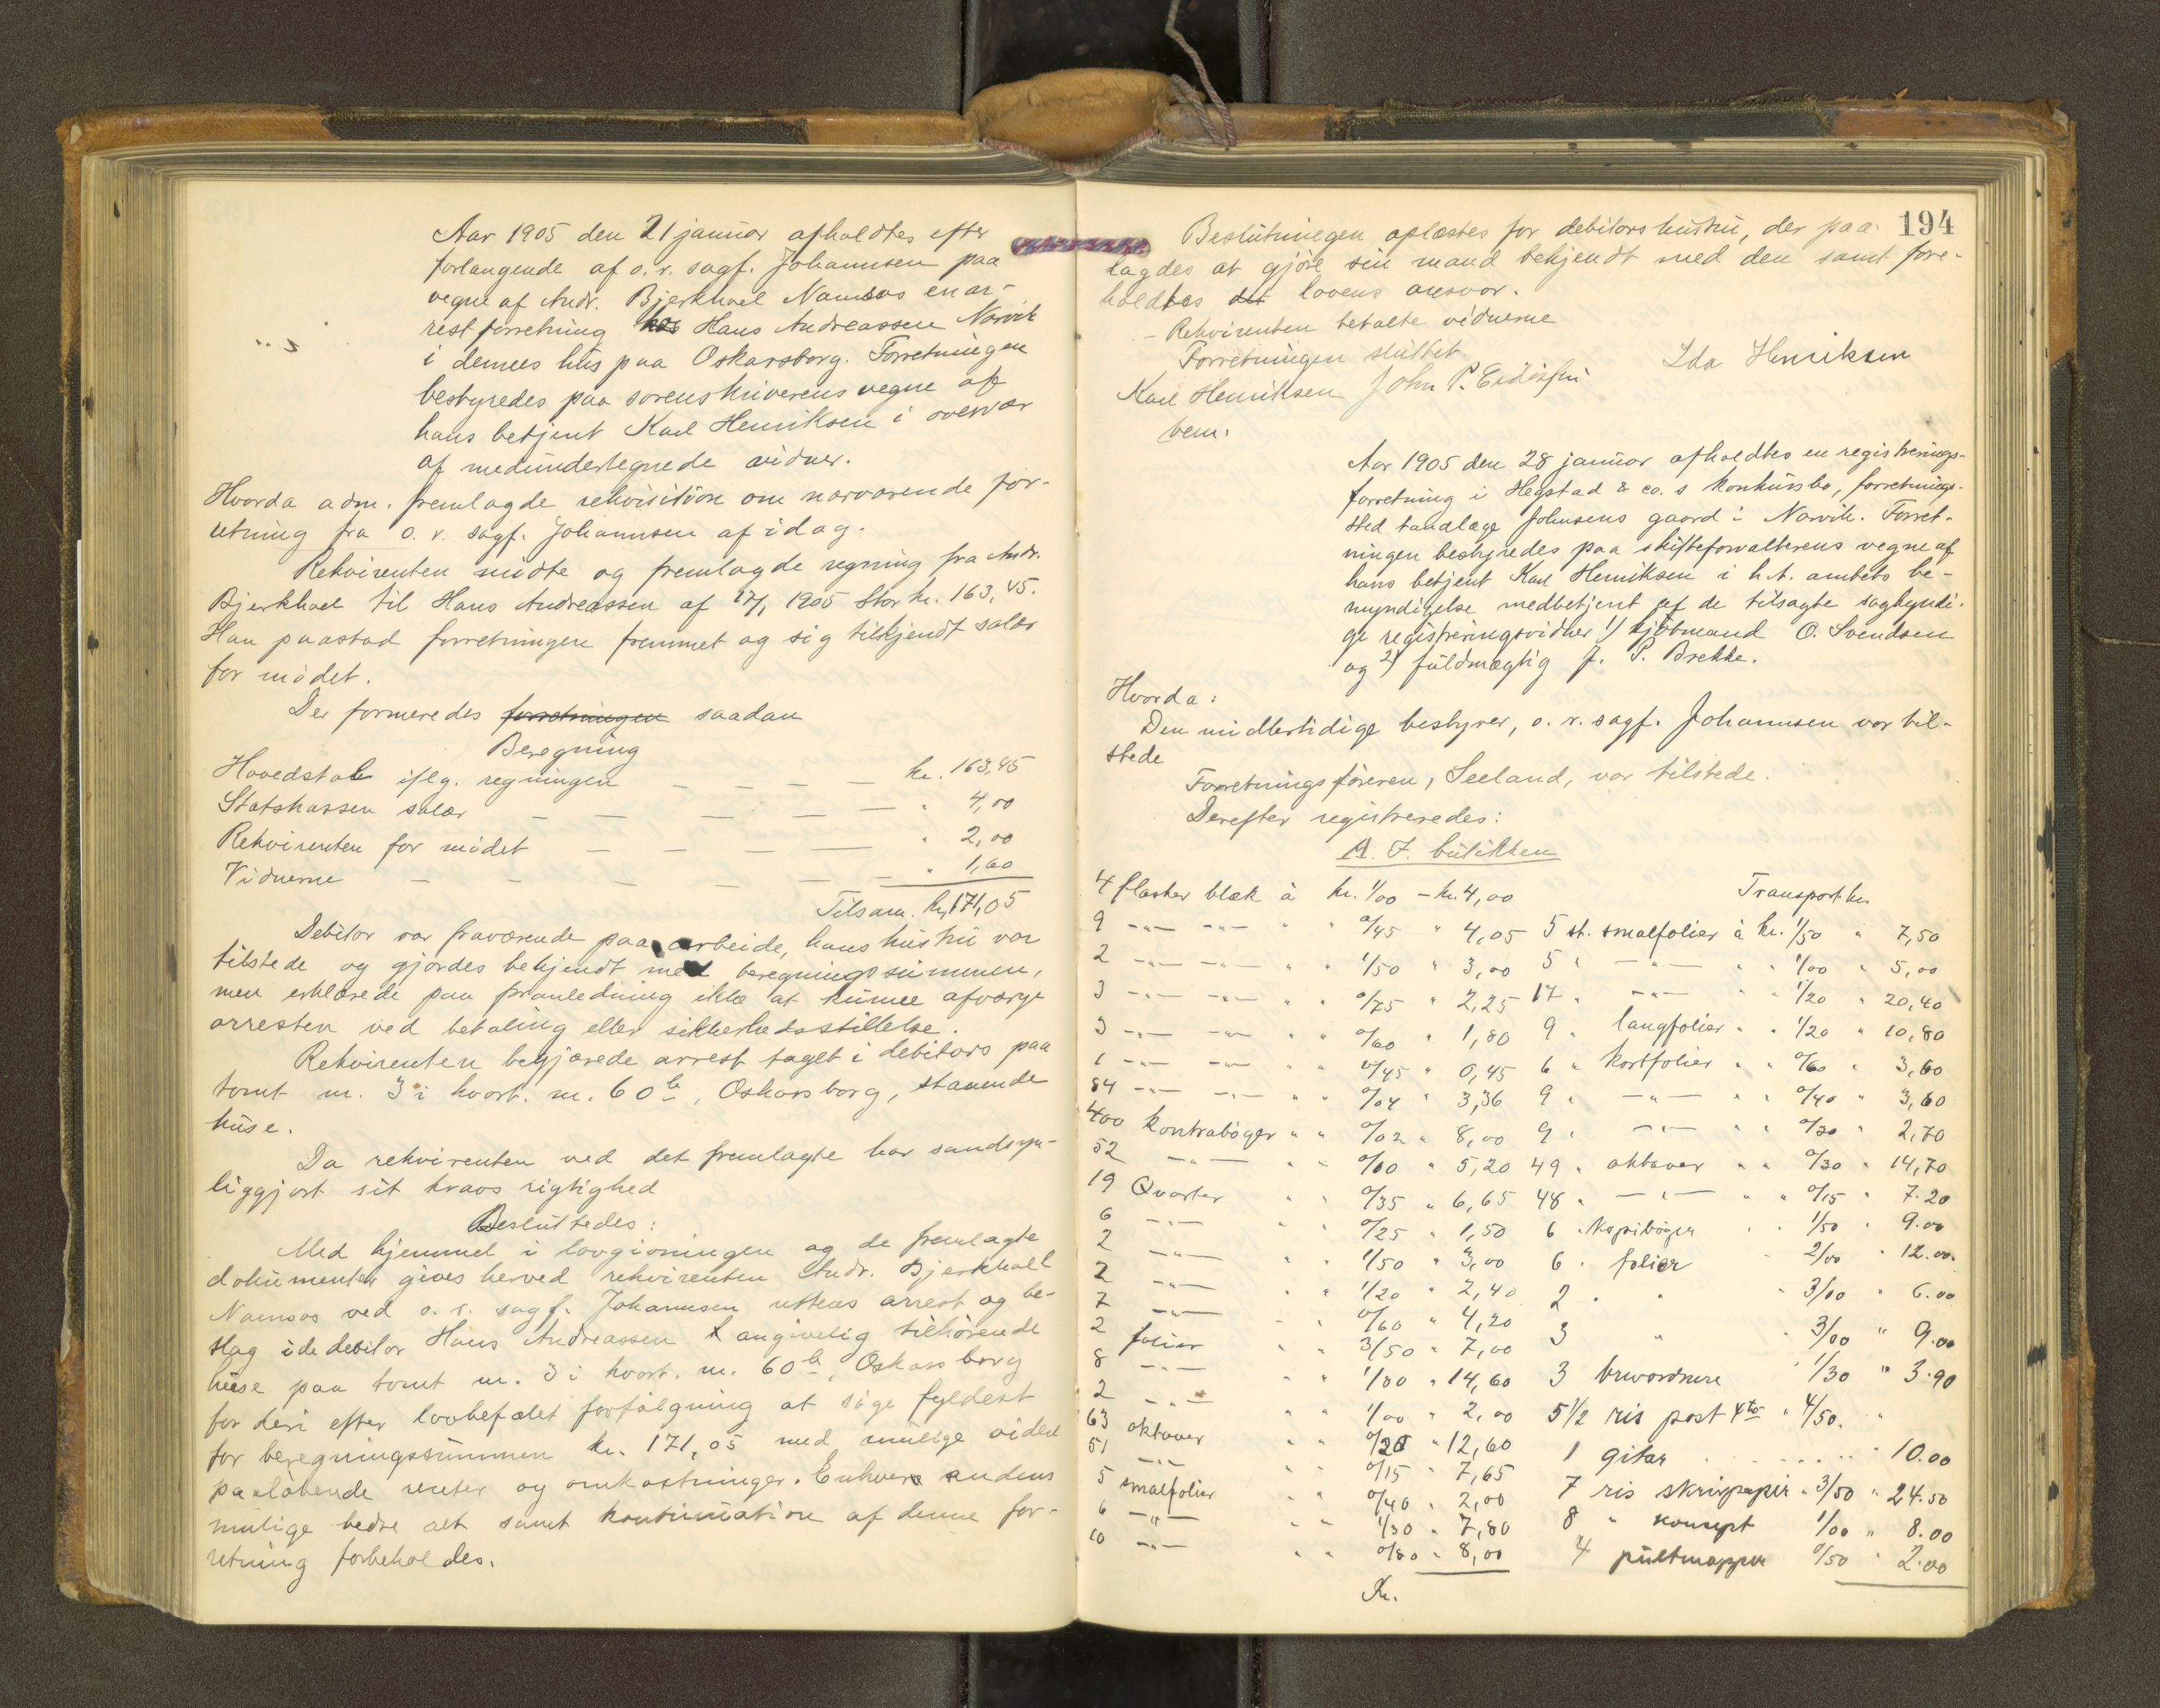 Aar 1905 den 21 januar afholdtes efter
forlangende af o.r. sagf. Johannsen paa
vegne af Andr. Bjerkhoel Namsos en ar-
rest forretning hos Hans Andreassen Narvik
i dennes hus paa Oskarsborg. Forretningen
bestyredes paa sorenskriverens vegne af
hans betjent Karl Henriksen i overvær
af medundertegnede vidner.
Hvorda adm. fremlagde rekvisition om nærværende for-
retning fra o.r. sagf. Johannsen af idag.
Rekvirenten mødte og fremlagde regning fra Andr.
Bjerkhoel til Hans Andreassen af 17/1 1905 stor kr. 163,45.
Han paastod forretningen fremmet og sig tilkjendt salær
for mødet.
Der formeredes forretningen saadan
Beregning
Hovedstol iflg. regningen — — — — kr. 163,45
Statskassen salær — — — — — " 4,00
Rekvirenten for mødet — — — — " 2,00
Vidnerne — — — — — — " 1,60
Tilsam. kr. 171,05
Debitor var fraværende paa arbeide, hans hustru var
tilstede og gjordes bekjendt med beregningssummen,
men erklærede paa foranledning ikke at kunne afværge
arresten ved betaling eller sikkerhedsstillelse.
Rekvirenten begjærede arrest taget i debitors paa
tomt nr. 3 i kvart. nr. 60 b, Oskarsborg, staaende
huse.
Da rekvirenten ved det fremlagte har sandsyn-
liggjort sit kravs rigtighed
Besluttedes:
Med hjemmel i lovgivningen og de fremlagte
dokumenter gives herved rekvirenten Andr. Bjerkhoel
Namsos ved o.r. sagf. Johannsen rettens arrest og be-
slag i de debitor Hans Andreassen angivelig tilhørende
huse paa tomt nr. 3 i kvart. nr. 60 b, Oskarsborg
for deri efter lovbefalet forfølgning at søge fyldest
for beregningssummen kr. 171,05 med mulige videre
paaløbende renter og omkostninger. Enhver andens
mulige bedre ret samt kontinuation af denne for-
retning forbeholdes.
194
Beslutningen oplæstes for debitors hustru, der paa-
lagdes at gjøre sin mand bekjendt med den samt fore-
holdtes det lovens ansvar.
- Rekvirenten betalte vidnerne
Forretningen sluttet
Ida Henriksen
Karl Henriksen John P.
bem.
Aar 1905 den 28 januar afholdtes en registrerings-
forretning i Hegstad & co.s konkursbo, forretnings-
sted tandlæge Johnsens gaard i Narvik. Forret-
ningen bestyredes paa skifteforvalterens vegne af
hans betjent Karl Henriksen i h.t. amtets be-
myndigelse medbetjent af de tilsagte sagkyndi-
ge registreringsvidner 1) kjøbmand O. Svendsen
og 2) fuldmægtig J. P. Brekke.
Hvorda:
Den midlertidige bestyrer, o.r. sagf. Johannsen var til-
stede
Forretningsføreren, Seeland, var tilstede.
Derefter registreredes:
A. I butikken
4 flasker blæk à kr. 1/00 - kr. 4,00
9 -"- -"- " " 0/45 " 4,05
2 -"- -"- " " 1/50 " 3,00
3 -"- -"- " " 0/75 " 2,25
3 -"- -"- " " 0/60 " 1,80
1 -"- -"- " " 0/45 " 0,45
84 -"- -"- " " 0/04 " 3,36
400 kontrabøger " " 0/02 " 8,00
52 -"- " " 0/10 " 5,20
19 Qvarter " " 0/35 " 6,65
6 -"- " " 0/25 " 1,50
2 -"- " " 1/50 " 3,00
2 -"- " " 1/20 " 2,40
7 -"- " " 0/60 " 4,20
2 folier " " 3/50 " 7,00
8 -"- " " 1/80 " 14,60
2 -"- " " 1/00 " 2,00
63 oktaver " " 0/20 " 12,60
51 -"- " " 0/15 " 7,65
5 smalfolier " " 0/40 " 2,00
6 -"- " " 1/30 " 7,80
10 -"- " " 0/80 " 8,00
Kr.
Transport kr.
5 st. smalfolier à kr. 1/50 " 7,50
5 " -"- " " 1/00 " 5,00
17 " -"- " " 1/20 " 20,40
9 " langfolier " " 1/20 " 10,80
6 " kortfolier " " 0/60 " 3,60
9 " -"- " " 0/40 " 3,60
9 " -"- " " 0/30 " 2,70
49 " oktaver " " 0/30 " 14,70
48 " -"- " " 0/15 " 7.20
6 " Kopibøger " " 1/50 " 9.00
6 " folier " 2/00 " 12.00
2 " " " 3/00 " 6.00
3 " " 3/00 " 9.00
3 brevordnere " 1/30 " 3.90
5 1/2 ris post 4to " 4/50. "
1 gitar " 10.00
7 ris skrivpapir " 3/50 " 24.50
8 " konsept 1/00 " 8.00
4 pultmapper 0/50 " 2.00